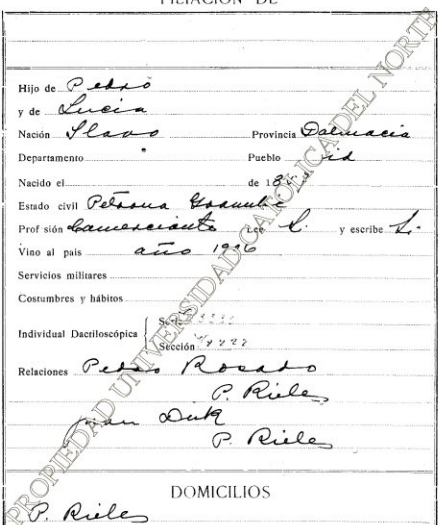 FILIACIÓN DE
Hijo de Pedro
y de Lucia
Nación Slavo Provincia Dalmacia
Departamento Pueblo id
Nacido el de 18
Estado civil Petrona
Prof sión Comerciante Lee S. y escribe S.
Vino al país año 1906
Servicios militares
Costumbres y hábitos
Individual Dactiloscópica
Sección
Relaciones Pedro Rosado
P. Rieles
Juan Duk
P. Rieles
DOMICILIOS
P. Rieles
PROPIEDAD UNIVERSIDAD CATOLICA DEL NORTE